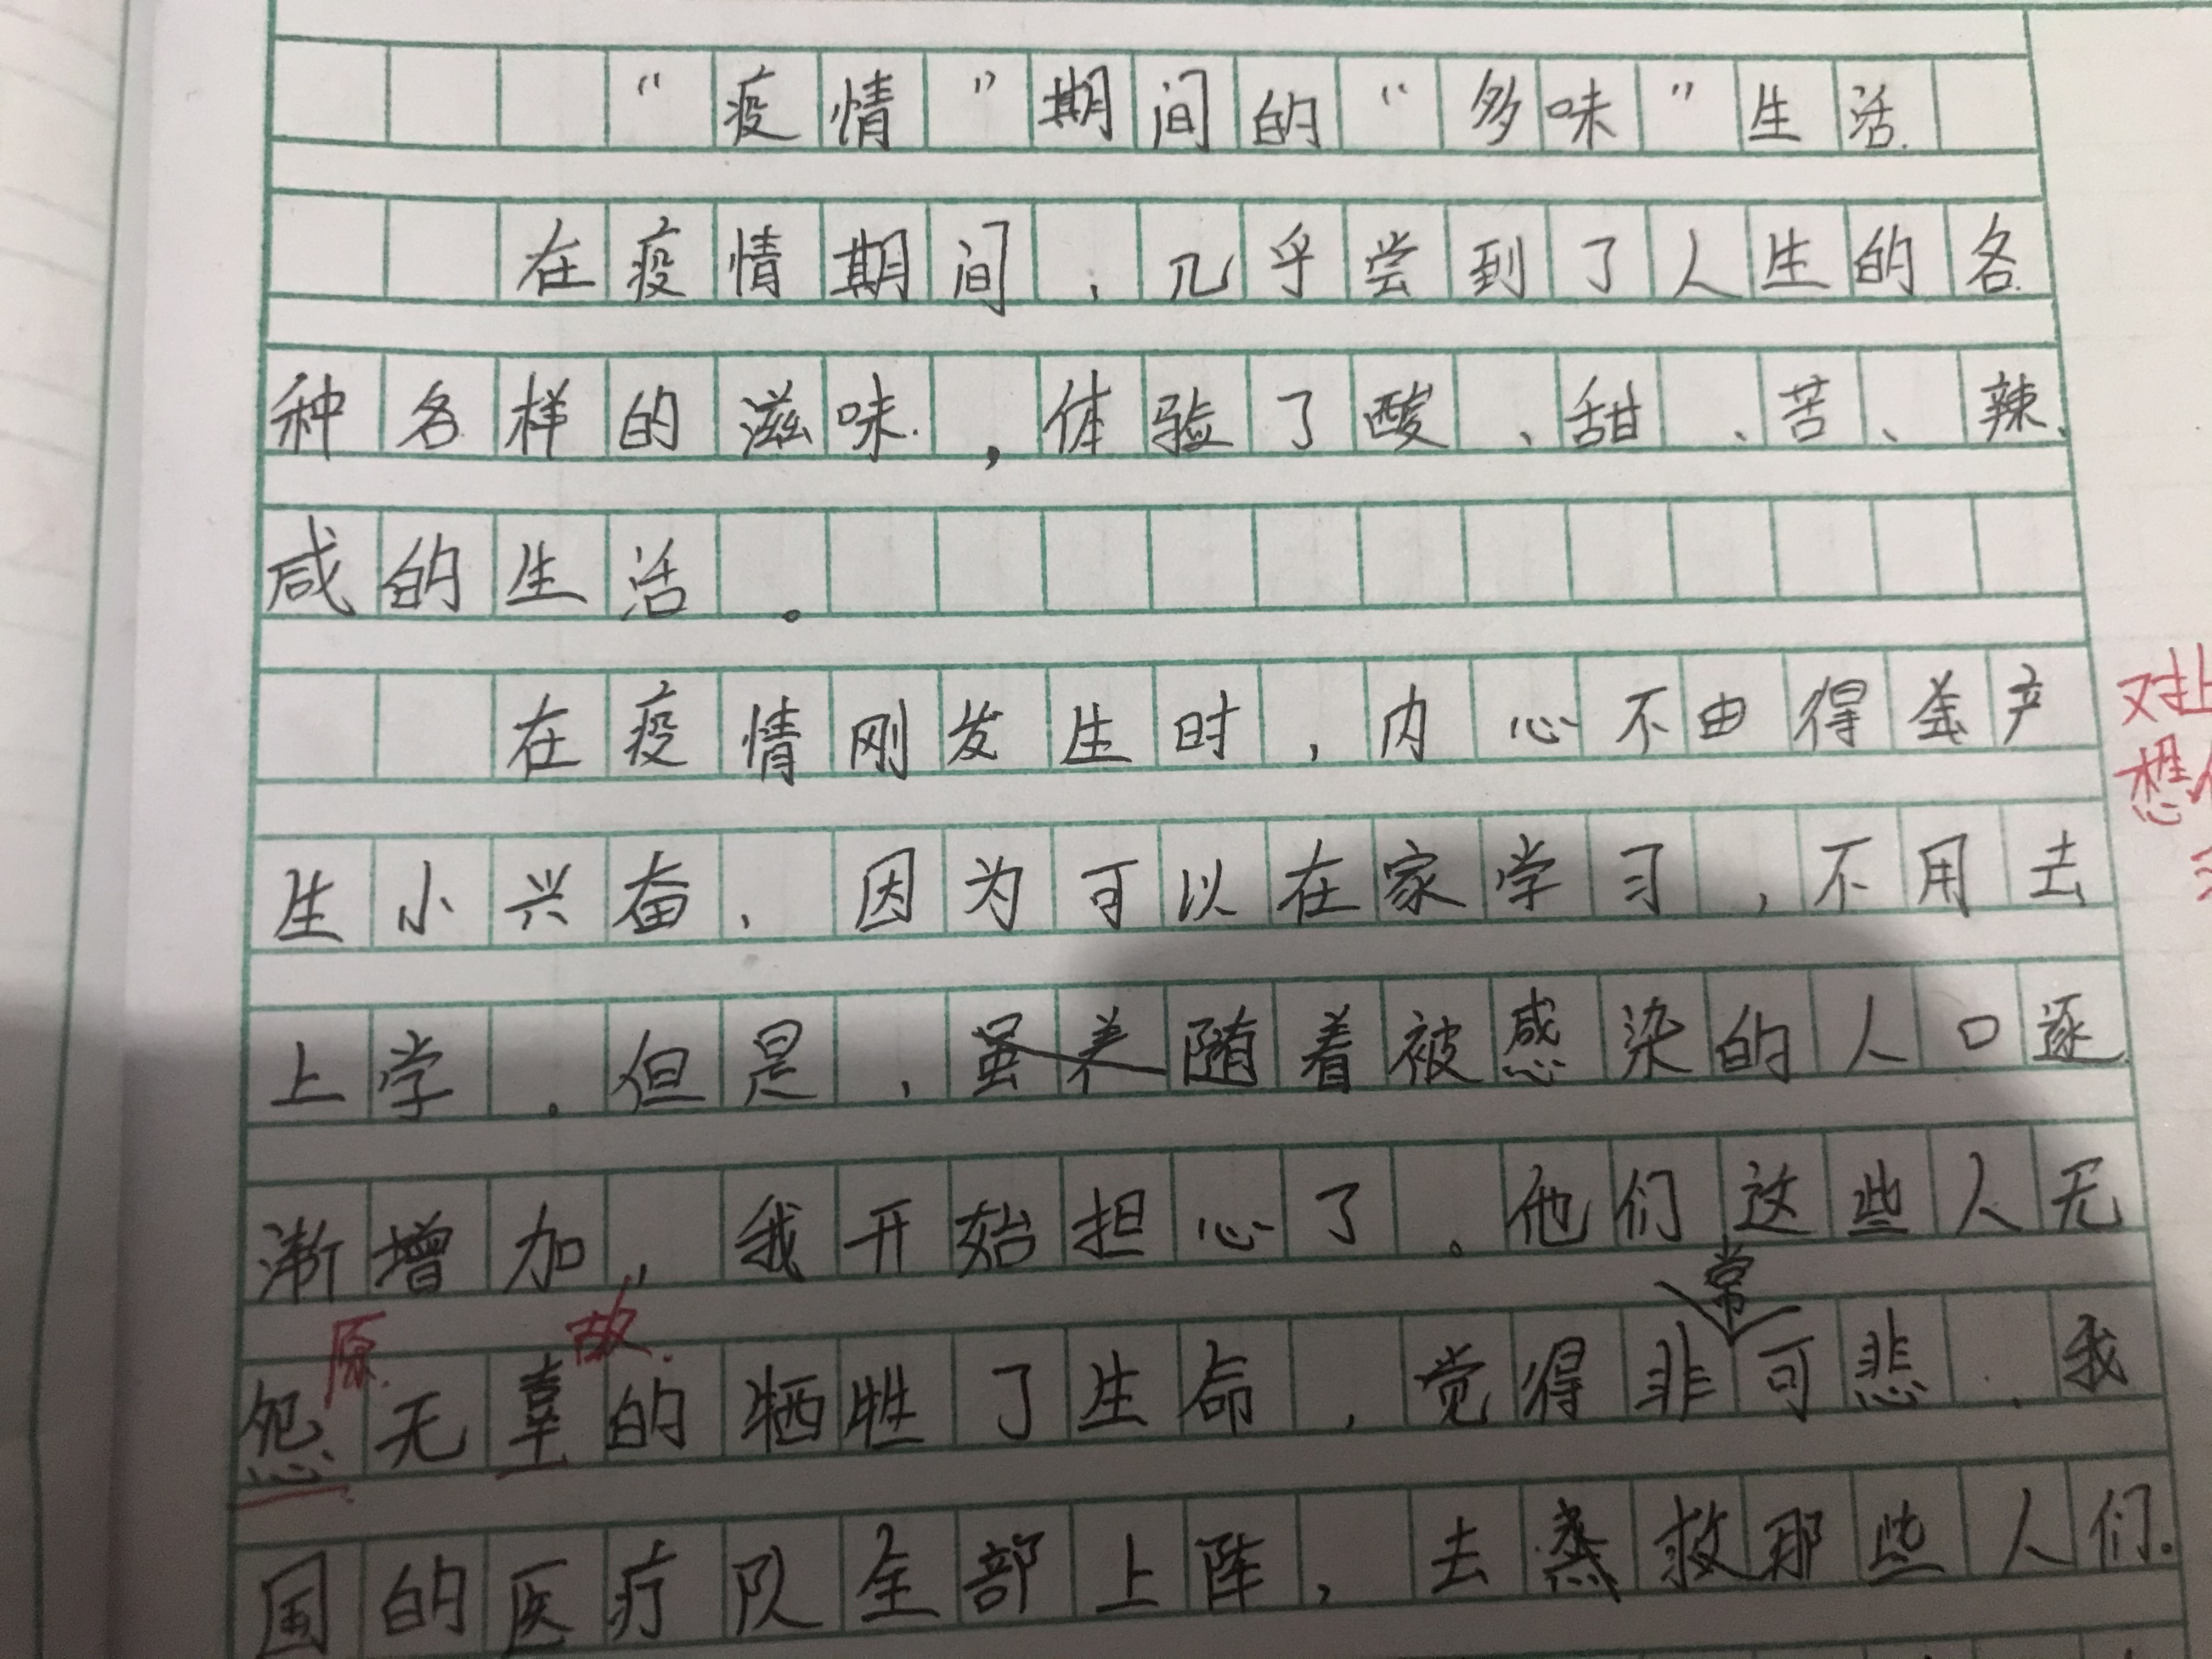 “疫情”期间的“多味”生活
在疫情期间，几乎尝到了人生的各
种各样的滋味，体验了酸、甜、苦、辣、
咸的生活。
在疫情刚发生时，内心不由得产
生小兴奋，因为可以在家学习，不用去
上学。但是，随着被感染的人口逐
渐增加，我开始担心了。他们这些人无
常
原 故
怨无辜的牺牲了生命，觉得非可悲，我
国的医疗队全部上阵，去救那些人们。
对
想